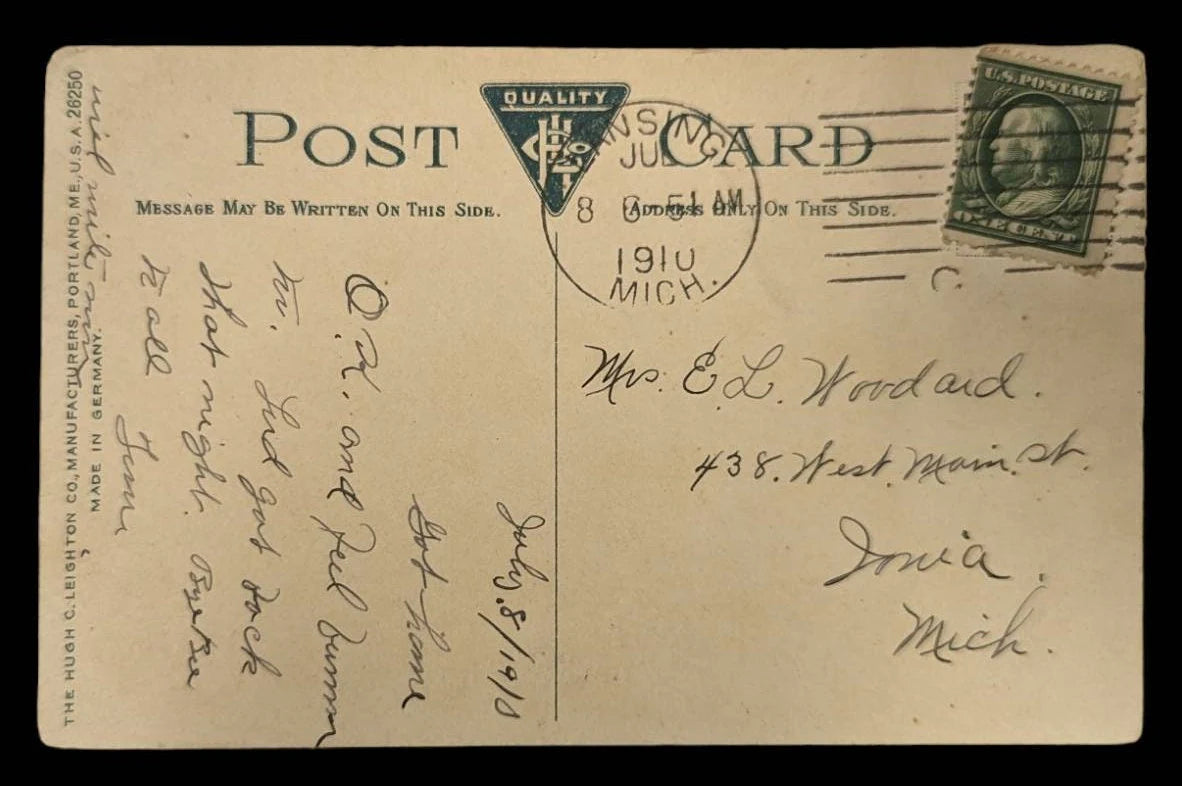 POST CARD
QUALITY
MESSAGE MAY BE WRITTEN ON THIS SIDE.
ADDRESS ONLY ON THIS SIDE.
LANSING
JUL
8
AM
1910
MICH.
U.S. POSTAGE
July. 8/1910
Got home
O.K. and feel
that night. Bye Bye
to all
THE HUGH C. LEIGHTON CO., MANUFACTURERS, PORTLAND, ME., U.S.A. 26250
MADE IN GERMANY.
Mrs. E. L. Woodard.
438. West. Main. St.
Ionia.
Mich.